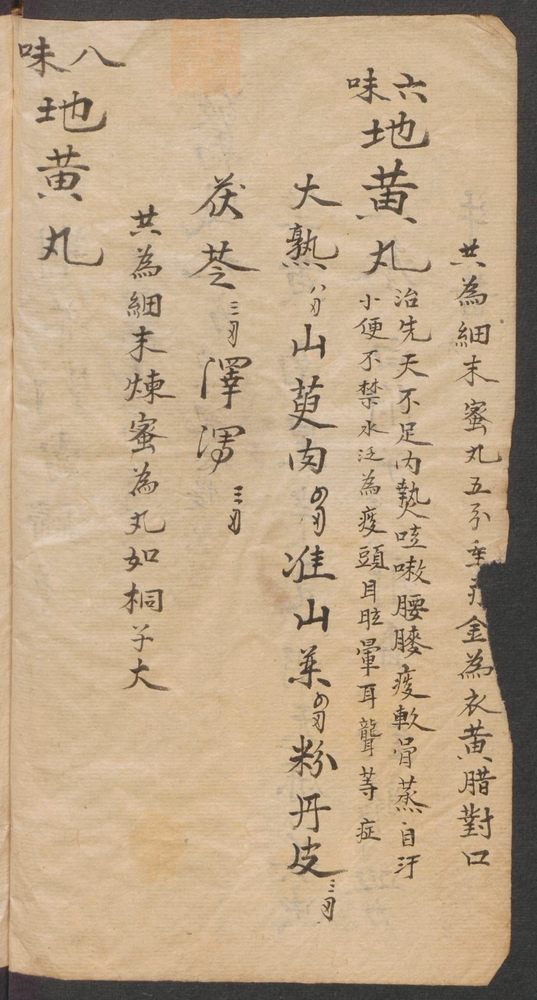 共為細末蜜丸五分重 金為衣黃腊對口
六味地黃丸
治先天不足內熱咳嗽腰膝痠軟骨蒸自汗
小便不禁水泛為痰頭目眩暈耳聾等症
大熟 山萸肉 准山藥 粉丹皮
茯苓 澤瀉
共為細末煉蜜為丸如桐子大
八味地黃丸